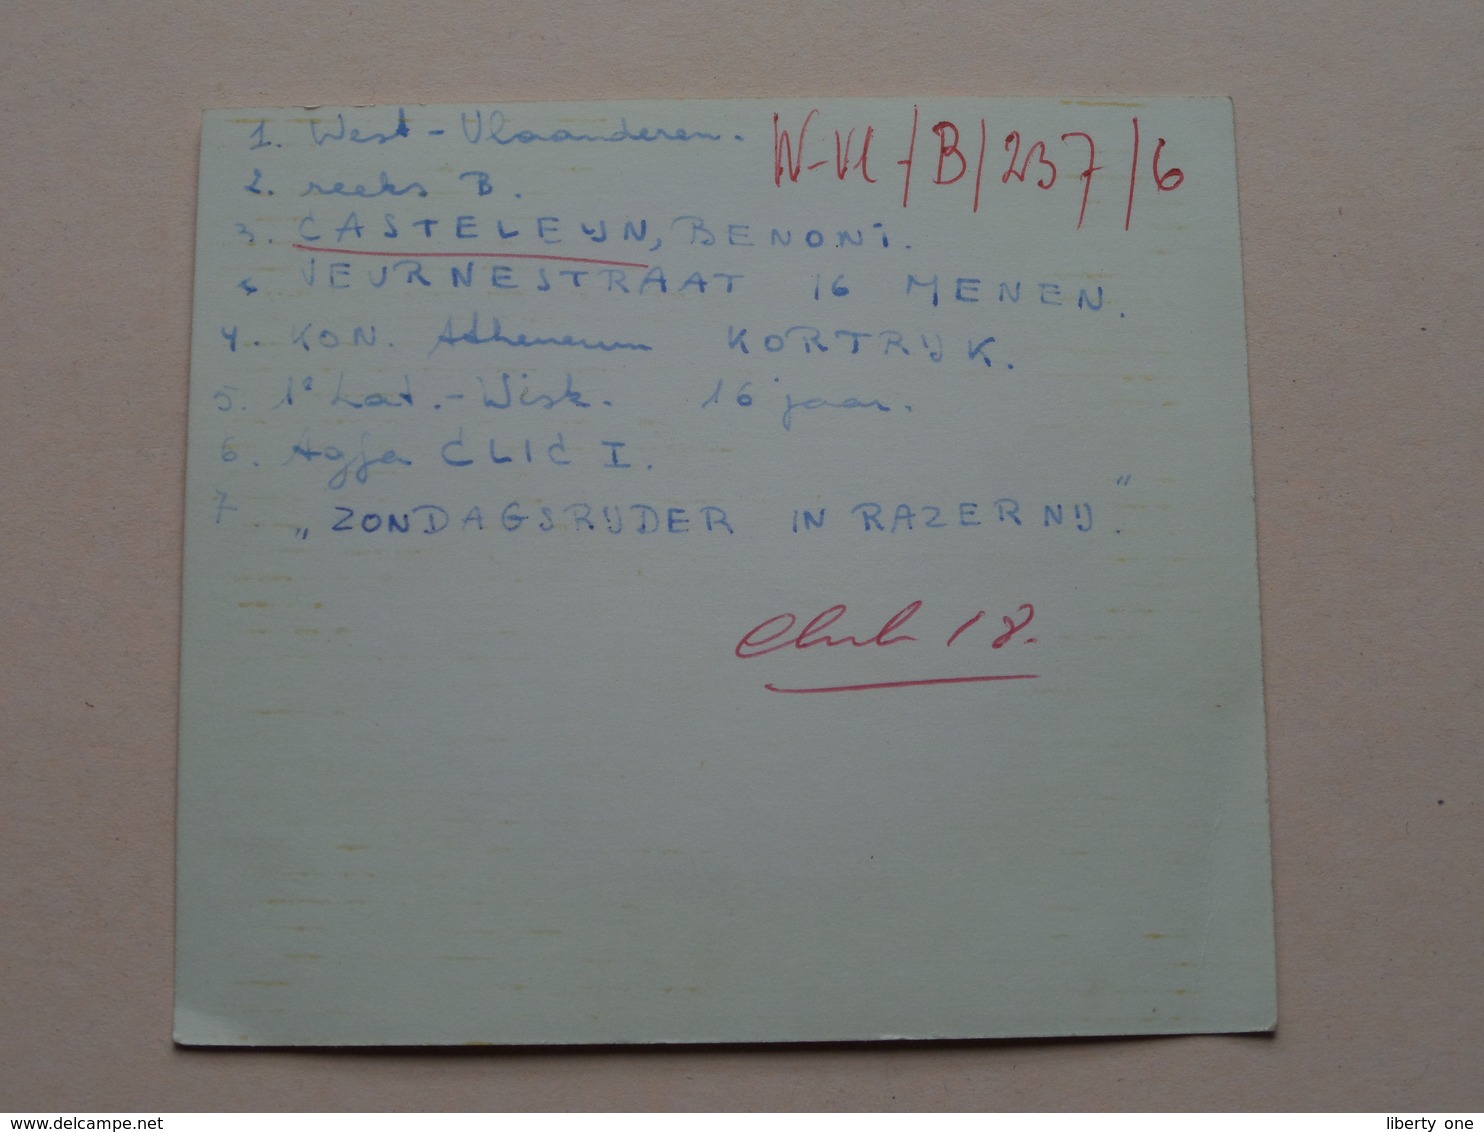 1. West-Vlaanderen. W-Vl/B/237/6
2. reeks B.
3. CASTELEIJN, BENONI.
VEURNESTRAAT 16 MENEN.
4. KON. Atheneum KORTRIJK.
5. 1e Lat.-Wisk. 16 jaar.
6. Agfa CLIC I.
7 „ZONDAGSRIJDER IN RAZERNIJ."
Club 18.
delcampe.net
liberty one